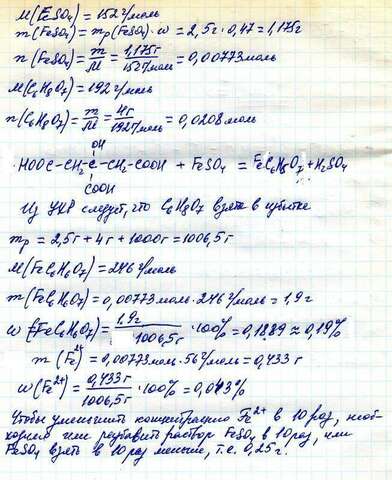 M(FeSO₄) = 152 г/моль
m(FeSO₄) = mр(FeSO₄)·w = 2,5г·0,47 = 1,175г
n(FeSO₄) = m/M = 1,175г/152г/моль = 0,00773 моль
M(C₆H₈O₇) = 192 г/моль
n(C₆H₈O₇) = m/M = 4г/192г/моль = 0,0208 моль
OH
HOOC–CH₂–C–CH₂–COOH + FeSO₄ = FeC₆H₆O₇ + H₂SO₄
COOH
Из УХР следует, что C₆H₈O₇ взята в избытке
mр = 2,5г + 4г + 1000г = 1006,5г
M(FeC₆H₆O₇) = 246 г/моль
m(FeC₆H₆O₇) = 0,00773 моль · 246 г/моль = 1,9г
w(FeC₆H₆O₇) = 1,9г/1006,5г · 100% = 0,1889 ≈ 0,19%
m(Fe²⁺) = 0,00773 моль · 56 г/моль = 0,433 г
w(Fe²⁺) = 0,433г/1006,5г · 100% = 0,043%
Чтобы уменьшить концентрацию Fe²⁺ в 10 раз, необ-
ходимо или разбавить раствор FeSO₄ в 10 раз, или
FeSO₄ взять в 10 раз меньше, т.е. 0,25г.